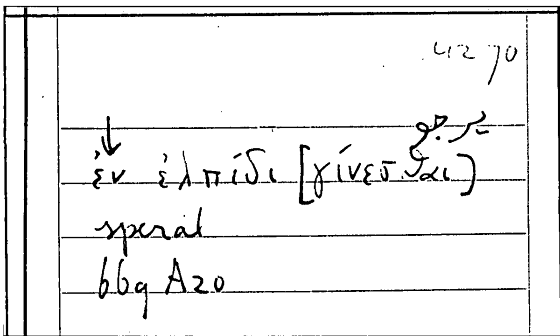 4290
يرجو
ἐν ἐλπίδι [γίνεσθαι]
sperat
669 A20